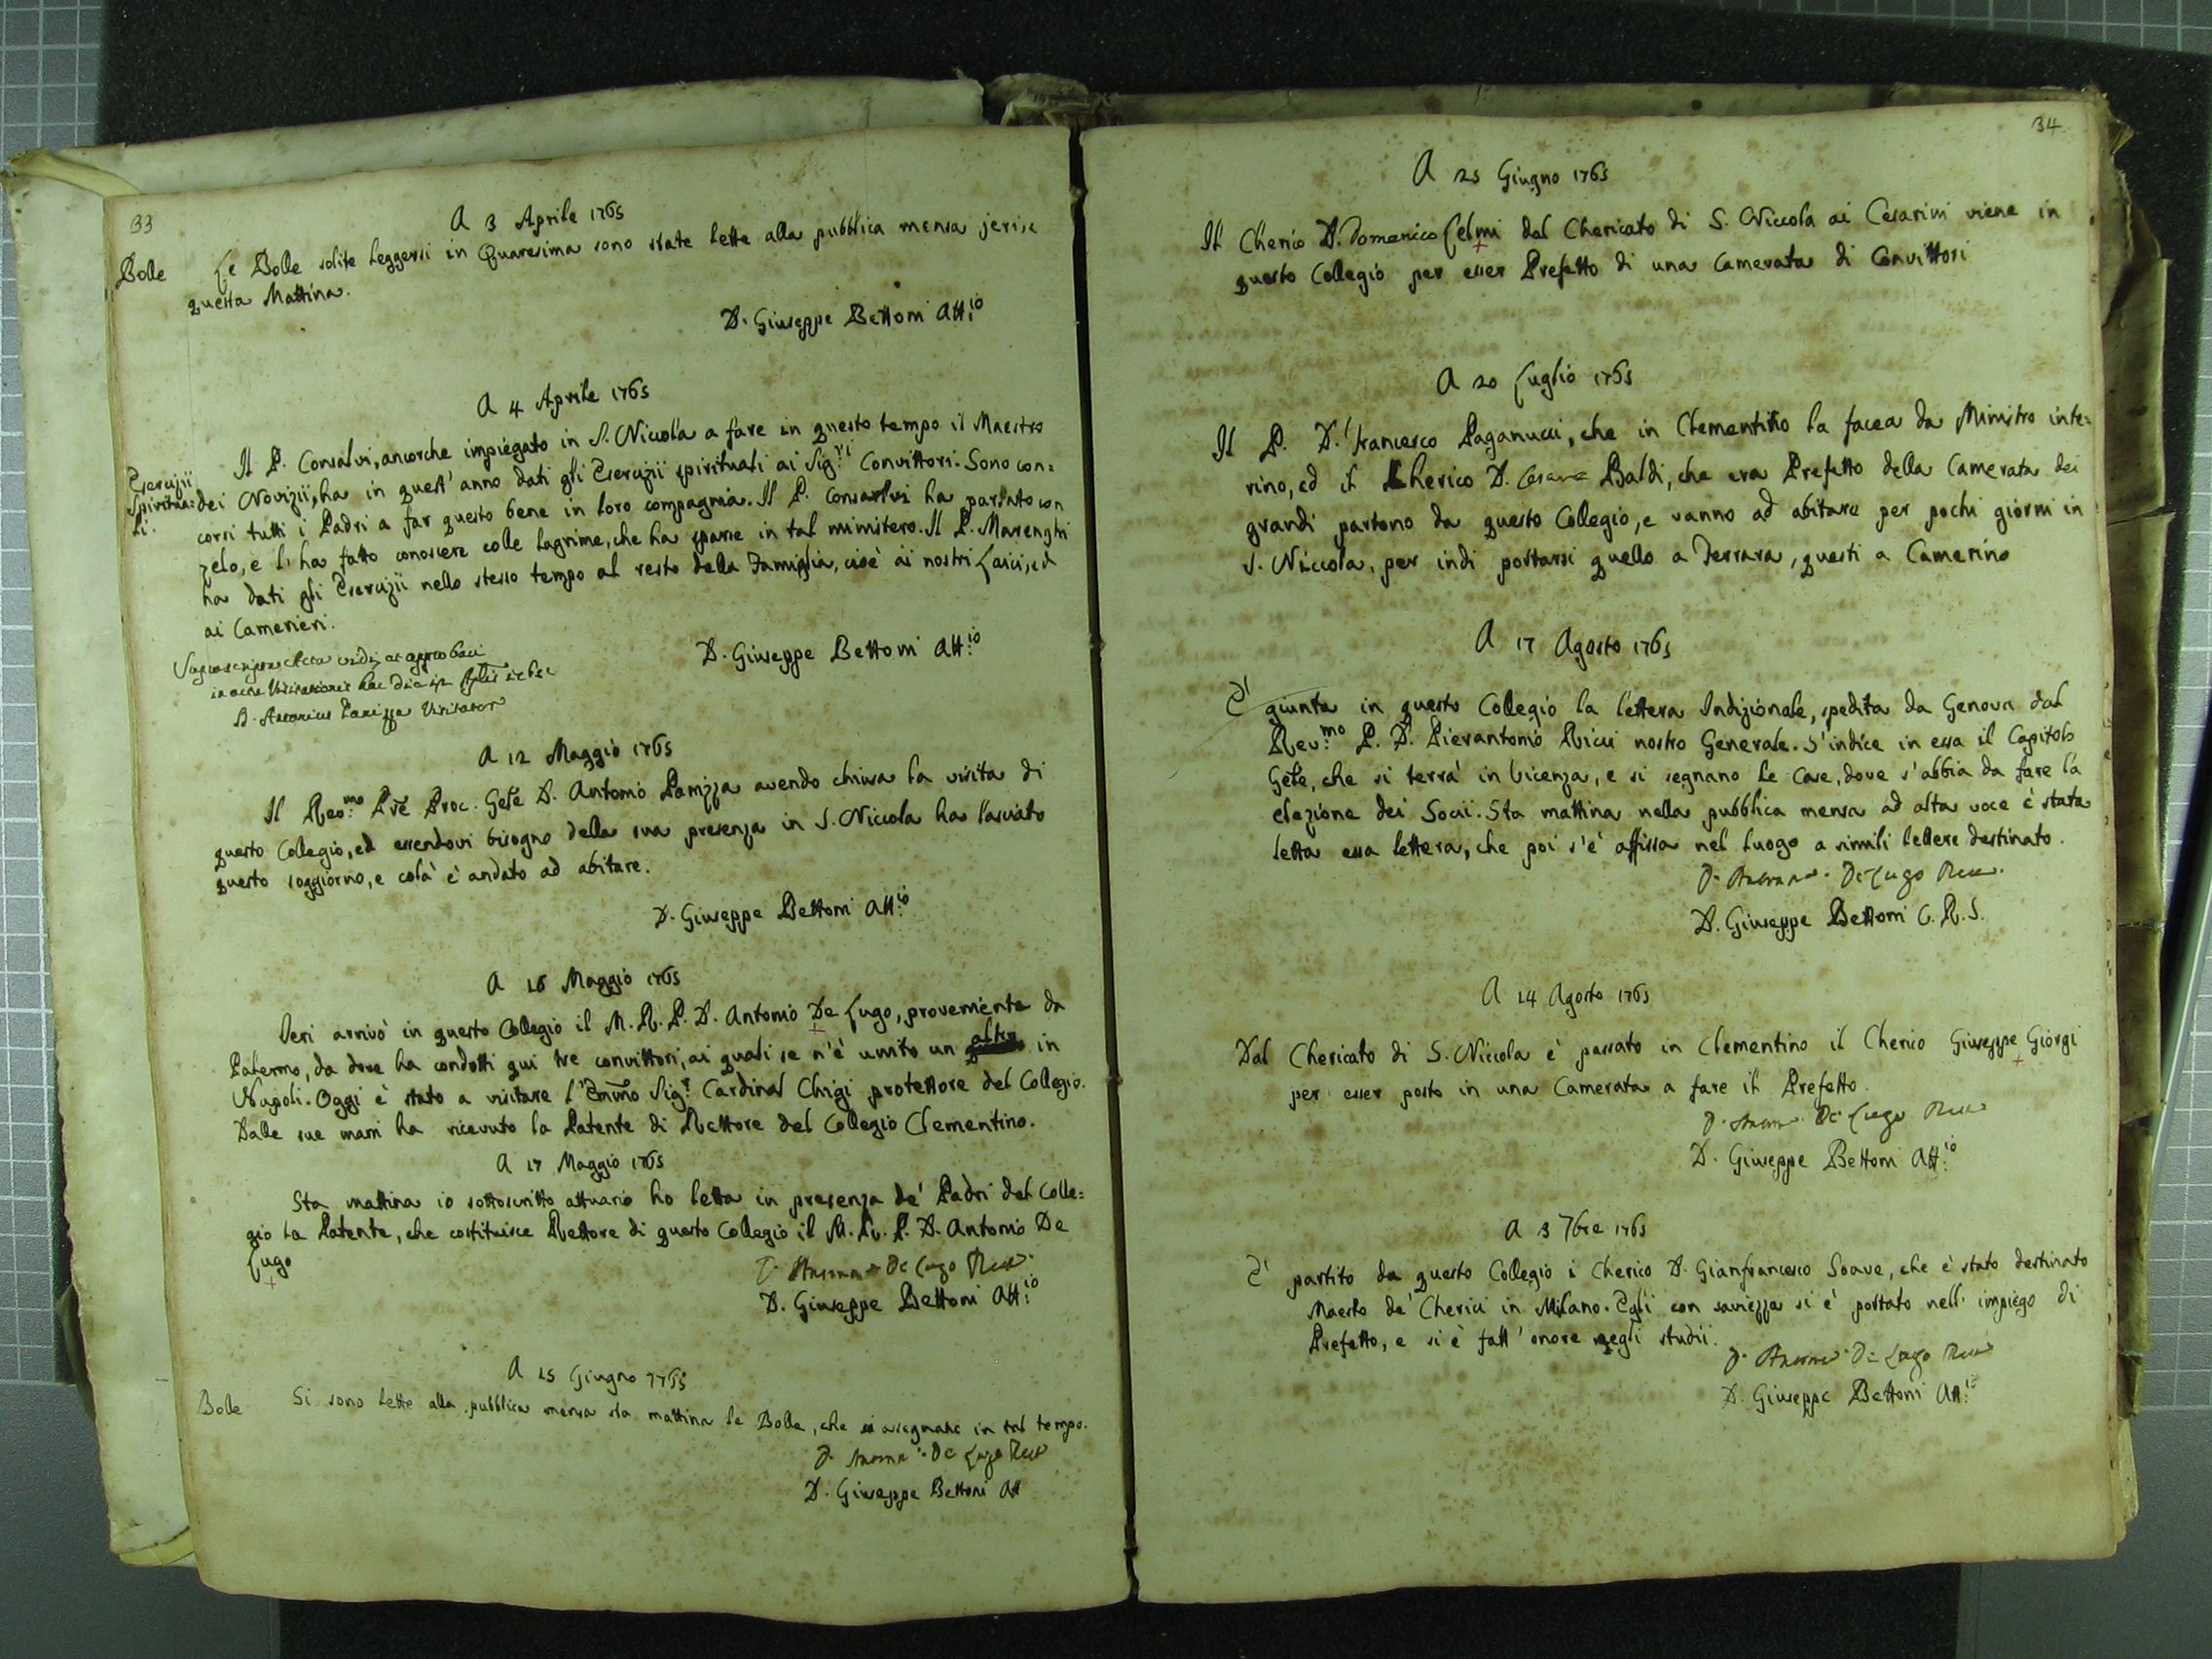 33
A 3 Aprile 1765
Bolle
Le Bolle solite leggersi in Quaresima sono state lette alla pubblica mensa jeri, e
questa Mattina.
D. Giuseppe Bettoni Att.io
A 4 Aprile 1765
Esercizii
Spiritua=
li.
Il P. Consalvi, ancorche impiegato in S. Niccola a fare in questo tempo il Maestro
dei Novizii, ha in quest'anno dati gli Esercizii spirituali ai Sig.ri Convittori. Sono con=
corsi tutti i Padri a far questo bene in loro compagnia. Il P. Consalvi ha parlato con
zelo, e li ha fatto conoscere colle lagrime, che ha sparse in tal ministero. Il P. Marenghi
ha dati gli Esercizii nello stesso tempo al resto della Famiglia, cioè ai nostri Laici, ed
ai Camerieri.
D. Giuseppe Bettoni Att.io
Suprascripta Acta vidi, ac approbavi
in actu Visitationis hac die 12
D. Antonius Panizza Visitator
A 12 Maggio 1765
Il Rev.mo Pre Proc. Gele D. Antonio Panizza avendo chiusa la visita di
questo Collegio, ed essendovi bisogno della sua presenza in S. Niccola ha lasciato
questo soggiorno, e colà è andato ad abitare.
D. Giuseppe Bettoni Att.io
A 16 Maggio 1765
Ieri arrivò in questo Collegio il M. R. P. D. Antonio De Lugo, proveniente da
Palermo, da dove ha condotti qui tre convittori, ai quali se n'è unito un altro in
Napoli. Oggi è stato a visitare l'Emmo Sig.r Cardinal Chigi protettore del Collegio.
Dalle sue mani ha ricevuto la Patente di Rettore del Collegio Clementino.
A 17 Maggio 1765
Sta mattina io sottoscritto attuario ho letta in presenza de' Padri del Colle=
gio la Patente, che costituisce Rettore di questo Collegio il M. R. P. D. Antonio De
Lugo
D. Antonio De Lugo Rett
D. Giuseppe Bettoni Att.io
A 25 Giugno 1765
Bolle
Si sono lette alla pubblica mensa sta mattina le Bolle, che assegnate in tal tempo.
D. Antonio De Lugo Rett
D. Giuseppe Bettoni Att
34
A 25 Giugno 1765
Il Cherico D. Domenico Celmi dal Chericato di S. Niccola ai Cesarini viene in
questo Collegio per esser Prefetto di una Camerata di Convittori
A 20 Luglio 1765
Il P. D. Francesco Paganucci, che in Clementino la facea da Ministro inte=
rino, ed il Cherico D. Cesare Baldi, che era Prefetto della Camerata dei
grandi partono da questo Collegio, e vanno ad abitare per pochi giorni in
S. Niccola, per indi portarsi quello a Ferrara, questi a Camerino
A 17 Agosto 1765
E' giunta in questo Collegio la lettera Indizionale, spedita da Genova dal
Rev.mo P. D. Pierantonio Ricci nostro Generale. S'indice in essa il Capitolo
Gele, che si terrà in Vicenza, e si segnano le Case, dove s'abbia da fare la
elezione dei Socii. Sta mattina nella pubblica mensa ad alta voce è stata
letta essa lettera, che poi s'è affissa nel luogo a simili lettere destinato.
D. Antonio De Lugo Rett.
D. Giuseppe Bettoni C. R. S.
A 24 Agosto 1765
Dal Chericato di S. Niccola è passato in Clementino il Cherico Giuseppe Giorgi
per esser posto in una Camerata a fare il Prefetto.
D. Antonio De Lugo Rett
D. Giuseppe Bettoni Att.io
A 3 7bre 1765
E' partito da questo Collegio i Cherico D. Gianfrancesco Soave, che è stato destinato
Maesto de' Cherici in Milano. Egli con saviezza si è portato nell' impiego di
Prefetto, e si è fatt'onore negli studii.
D. Antonio De Lugo Rett
D. Giuseppe Bettoni Att.io